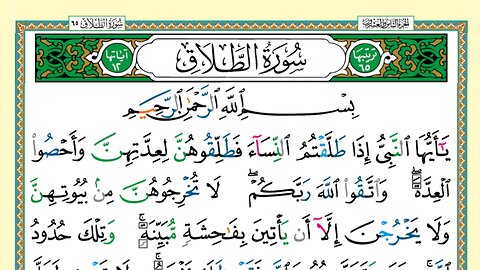 الجزء الثامن والعشرون سورة الطلاق ٦٥
ترتيبها ٦٥ سُورَةُ الطَّلَاقِ آياتها ١٢
بِسْمِ ٱللَّهِ ٱلرَّحْمَٰنِ ٱلرَّحِيمِ
يَٰٓأَيُّهَا ٱلنَّبِيُّ إِذَا طَلَّقْتُمُ ٱلنِّسَآءَ فَطَلِّقُوهُنَّ لِعِدَّتِهِنَّ وَأَحْصُوا۟
ٱلْعِدَّةَ ۖ وَٱتَّقُوا۟ ٱللَّهَ رَبَّكُمْ ۖ لَا تُخْرِجُوهُنَّ مِنۢ بُيُوتِهِنَّ
وَلَا يَخْرُجْنَ إِلَّآ أَن يَأْتِينَ بِفَٰحِشَةٍ مُّبَيِّنَةٍ ۚ وَتِلْكَ حُدُودُ